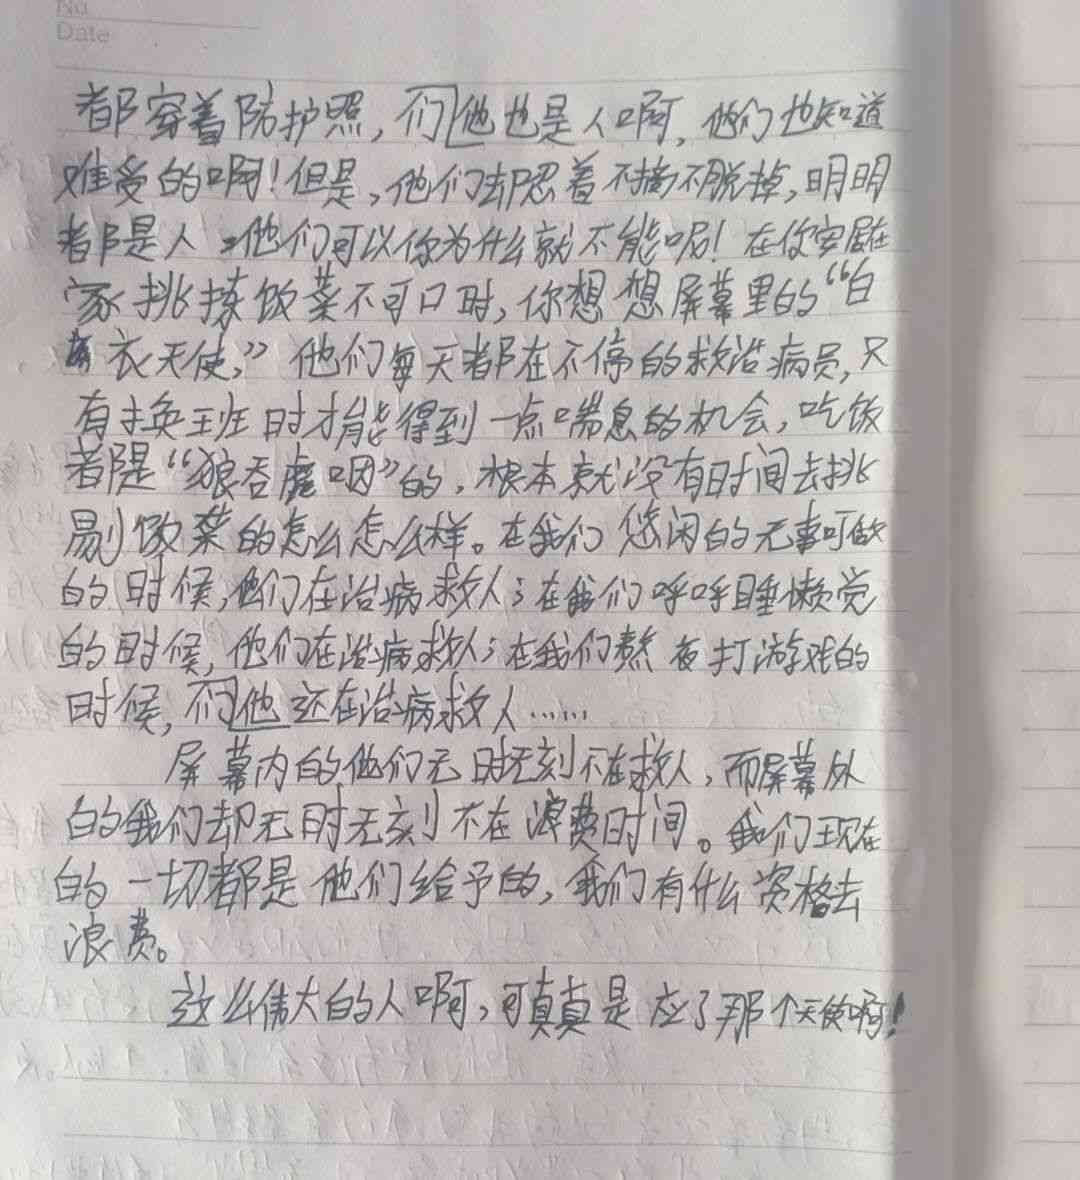 No
Date
都穿着防护照，们他也是人啊，他们也知道
难受的啊！但是，他们却忍着不摘不脱掉，明明
都是人，他们可以你为什么就不能呢！在你安居在
家挑拣饭菜不可口时，你想想屏幕里的“白
衣天使，”他们每天都在不停的救治病员，只
有换班时才能得到一点喘息的机会，吃饭
都是“狼吞虎咽”的，根本就没有时间去挑
剔饭菜的怎么怎么样。在我们悠闲的无事可做
的时候，他们在治病救人；在我们呼呼睡懒觉
的时候，他们在治病救人；在我们熬夜打游戏的
时候，们他还在治病救人……
屏幕内的他们无时无刻不在救人，而屏幕外
的我们却无时无刻不在浪费时间。我们现在
的一切都是他们给予的，我们有什么资格去
浪费。
这么伟大的人啊，可真真是应了那个天使啊！